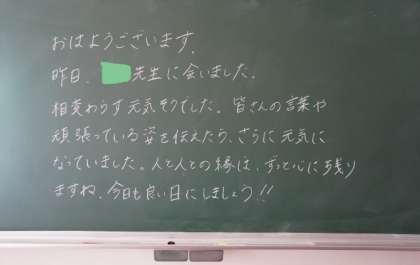 おはようございます。
昨日、先生に会いました。
相変わらず元気そうでした。皆さんの言葉や
頑張っている姿を伝えたら、さらに元気に
なっていました。人と人との縁は、ずっと心に残り
ますね。今日も良い日にしましょう!!